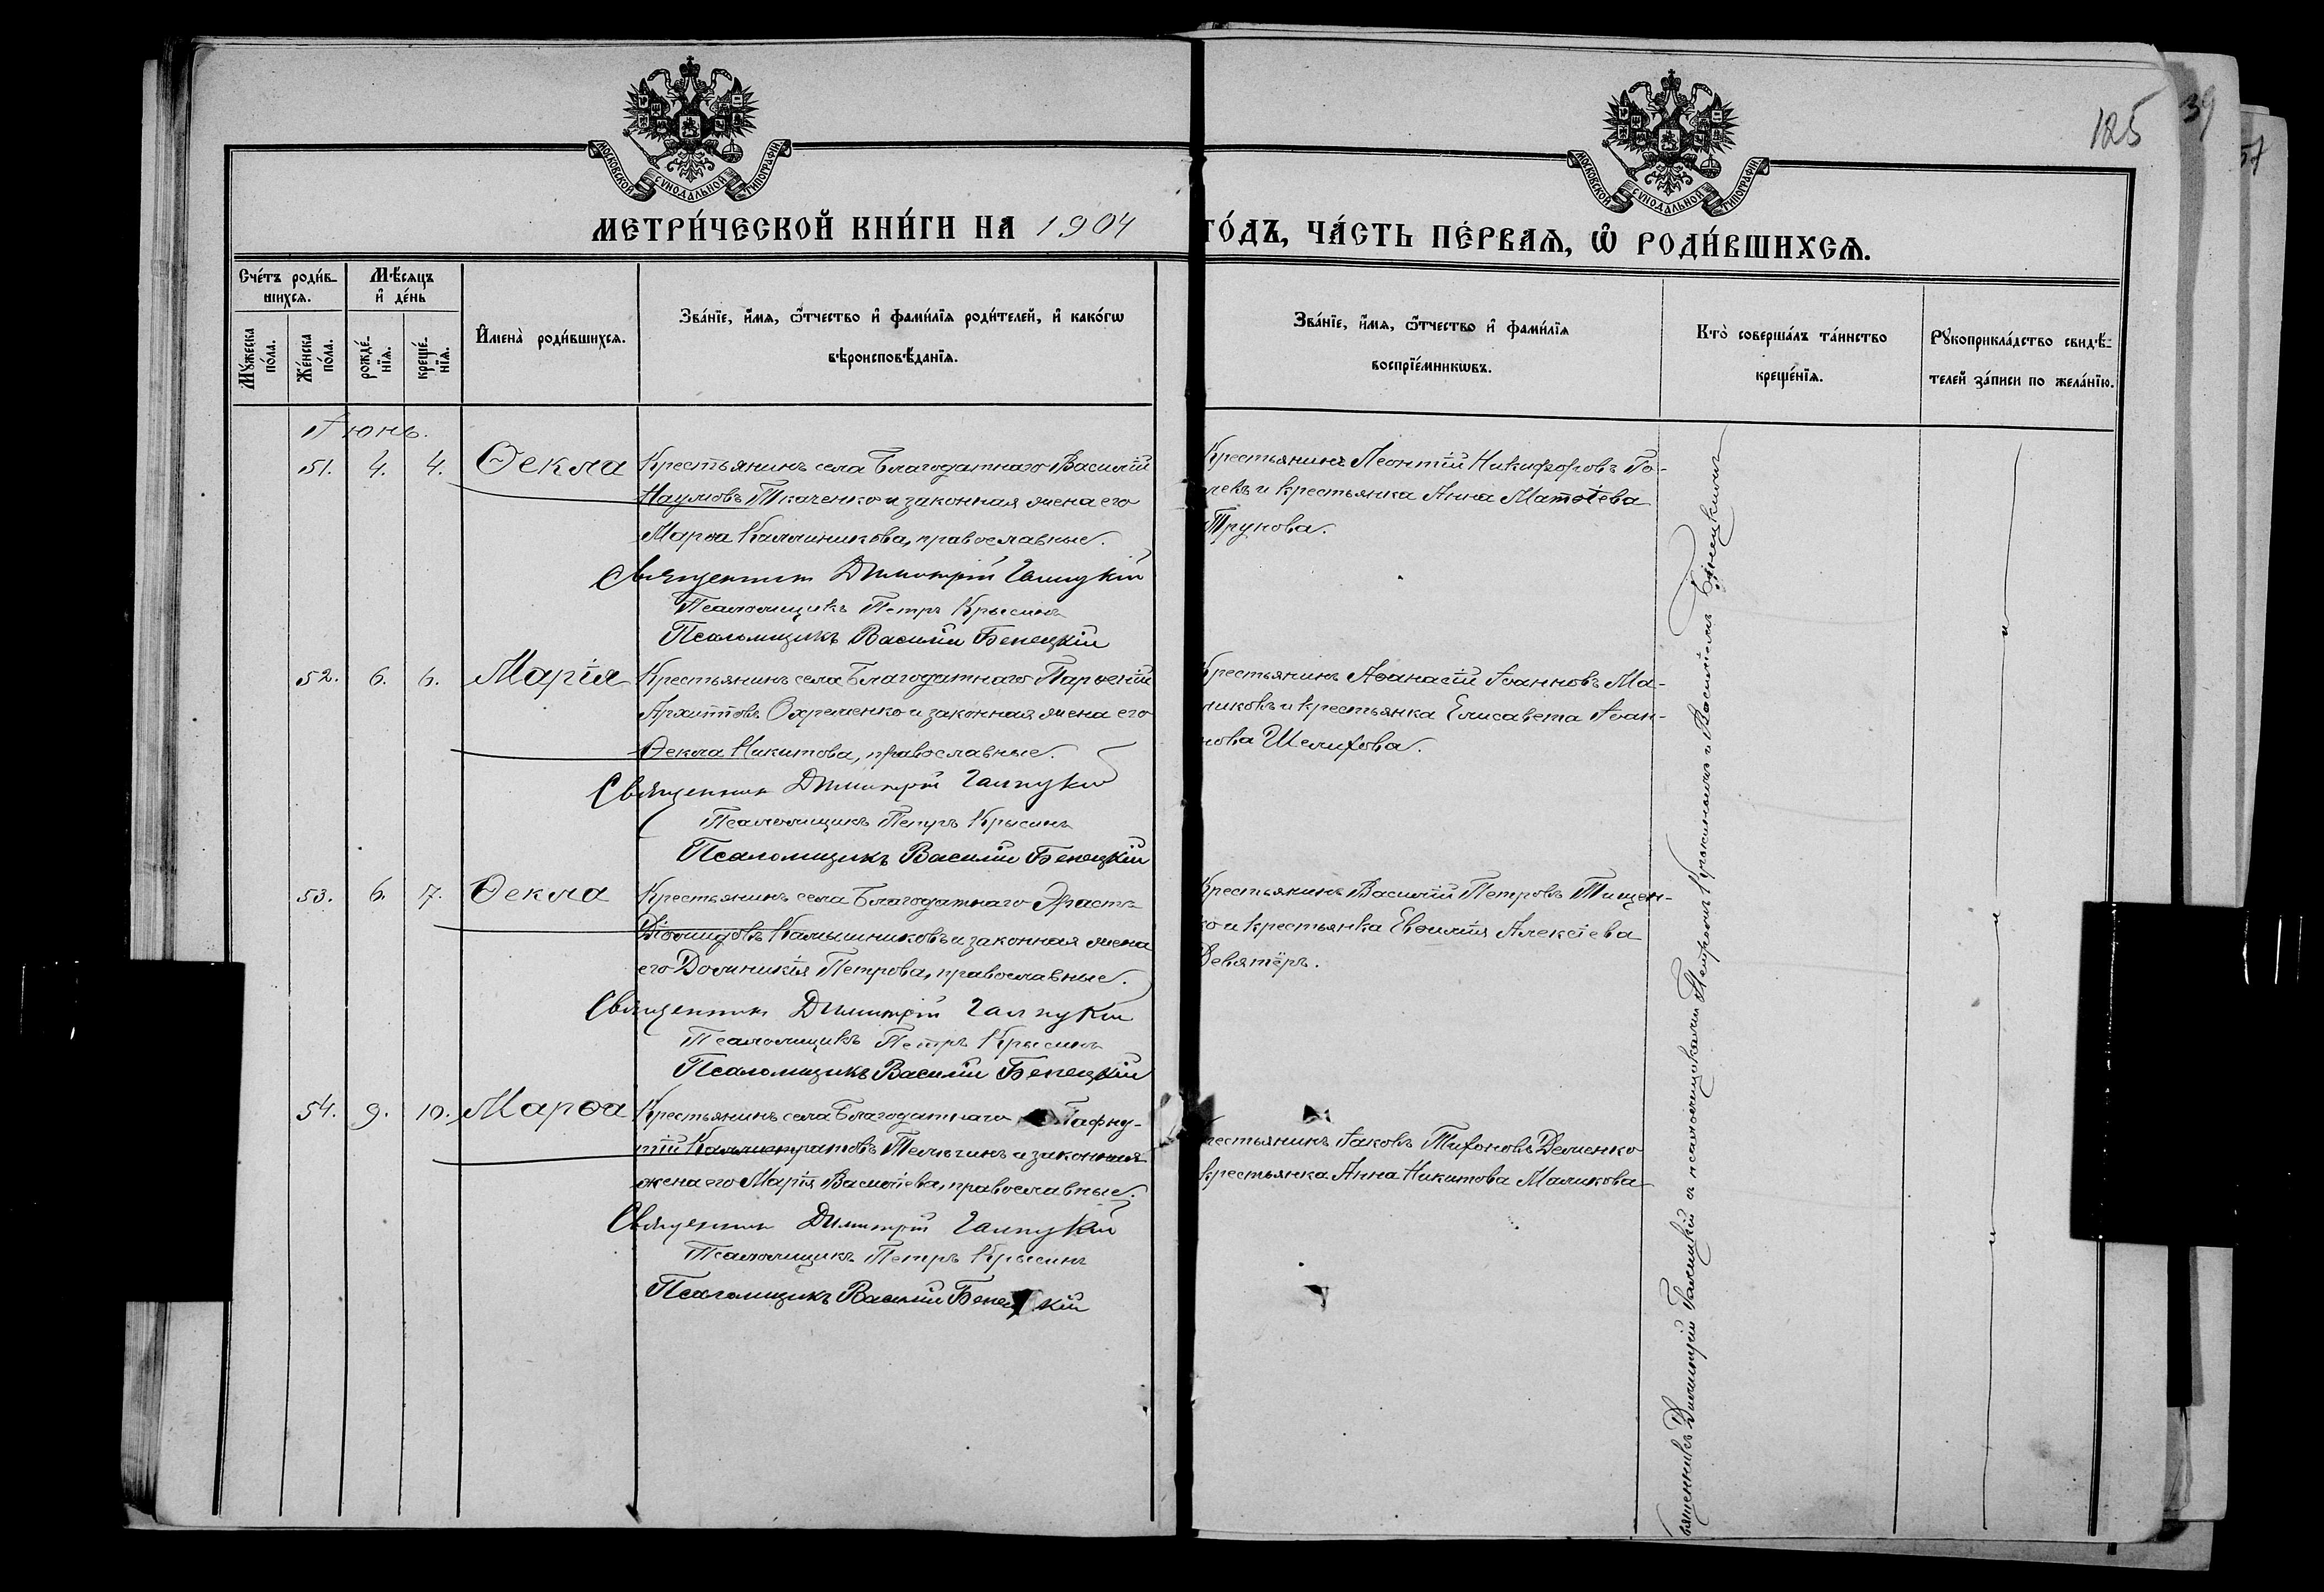 125
39
57
МОСКОВСКОЙ СѴНОДАЛЬНОЙ ТИПОГРАФІИ
МОСКОВСКОЙ СѴНОДАЛЬНОЙ ТИПОГРАФІИ
МЕТРИ́ЧЕСКОЙ КНИ́ГИ НА 1904
ГО́ДЪ, ЧА́СТЬ ПЕ́РВАѦ, Ѽ РОДИ́ВШИХСѦ.
Сче́тъ роди́вшихсѧ.
Мꙋ́жеска по́ла.
Же́нска по́ла.
Мѣ́сѧцъ и҆ де́нь
рожде́нїѧ.
креще́нїѧ.
И҆мена̀ роди́вшихсѧ.
Зва́нїе, и҆́мѧ, ѻ҆́тчество и҆ фами́лїѧ роди́телей, и҆ како́гѡ
вѣроисповѣ́данїѧ.
Зва́нїе, и҆́мѧ, ѻ҆́тчество и҆ фами́лїѧ
воспрїе́мникѡвъ.
Кто̀ соверша́лъ та́инство
креще́нїѧ.
Рꙋкоприкла́дство свидѣ́-
телей за́писи по жела́нїю.
Іюнь.
51. 4. 4. Ѳекла
Крестьянинъ села Благодатнаго Василій
Наумовъ Ткаченко и законная жена его
Марѳа Каллиникова, православные.
Священникъ Димитрій Галицкій
Псаломщикъ Петръ Крысинъ
Псаломщикъ Василій Бенецкій
Крестьянинъ Леонтій Никифоровъ
и крестьянка Анна Матѳіева
Трунова.
52. 6. 6. Марія
Крестьянинъ села Благодатнаго Парѳеній
Архиповъ Охременко и законная жена его
Ѳекла Никитова, православные.
Священникъ Димитрій Галицкій
Псаломщикъ Петръ Крысинъ
Псаломщикъ Василій Бенецкій
Крестьянинъ Аѳанасій Іоанновъ Ма-
ликовъ и крестьянка Елисавета Іоан-
нова Шелихова.
53. 6. 7. Ѳекла
Крестьянинъ села Благодатнаго Эрастъ
Діомидовъ Камышниковъ и законная жена
его Домникія Петрова, православные.
Священникъ Димитрій Галицкій
Псаломщикъ Петръ Крысинъ
Псаломщикъ Василій Бенецкій
Крестьянинъ Василій Петровъ Тищен-
ко и крестьянка Евѳимія Алексіева
Девятёръ.
54. 9. 10. Марѳа
Крестьянинъ села Благодатнаго Пафну-
тій Каллистратовъ Телегинъ и законная
жена его Марія Василіева, православные.
Священникъ Димитрій Галицкій
Псаломщикъ Петръ Крысинъ
Псаломщикъ Василій Бенецкій
Крестьянинъ Іаковъ Тихоновъ Деменко
крестьянка Анна Никитова Маликова
Священникъ Димитрій Галицкій съ псаломщиками Петромъ Крысинымъ и Василіемъ Бенецкимъ